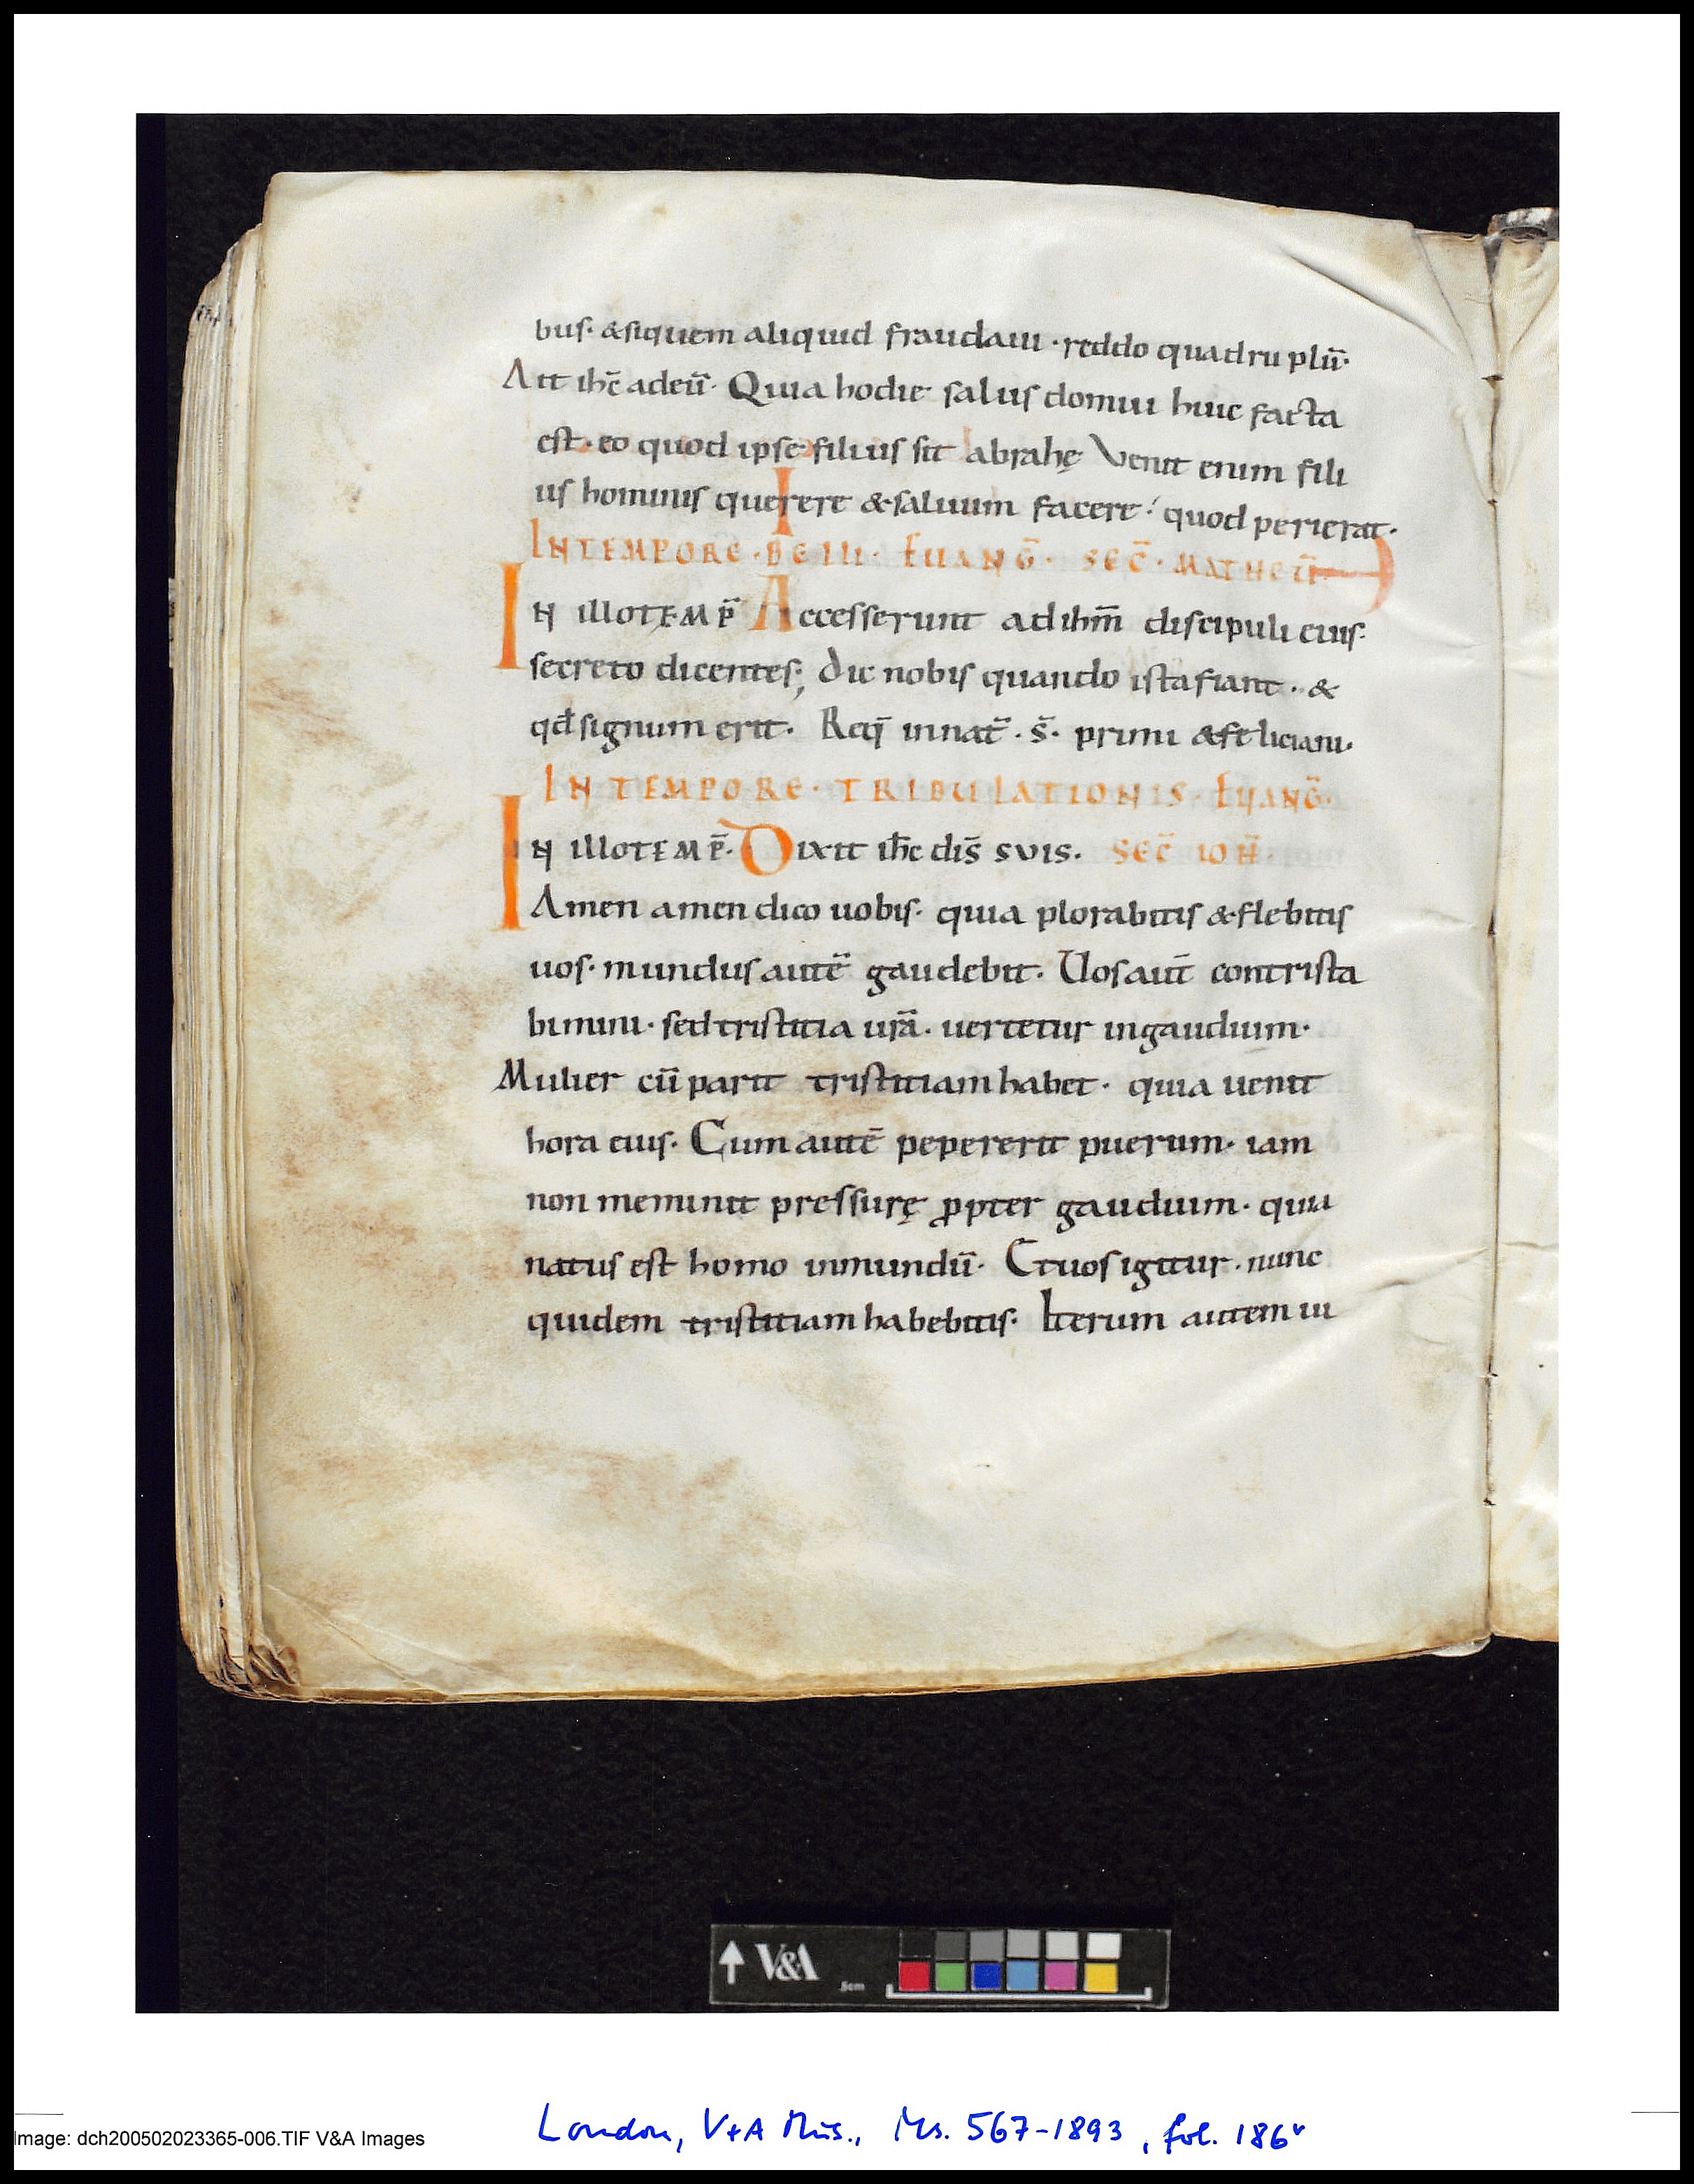 bus· & siquem aliquid fraudaui · reddo quadruplū·
Ait ihc̄ adeū· Quia hodie salus domui huic facta
est· eo quod ipse filius sit abrahę Venit enim fili
us hominis querere & saluum facere· quod perierat·
IN TEMPORE · BELLI · EUANḠ · SEC̄ · MATHEŪ
IN ILLO TEMP̄ Accesserunt ad ihm̄ discipuli eius·
secreto dicentes; dic nobis quando ista fiant · &
qd̄ signum erit· Req̄ in nat̄ · s̄ · primi & feliciani·
IN TEMPORE · TRIBULATIONIS · EUANḠ·
IN ILLO TEMP̄· Dixit ihc̄ dis̄ suis· SEC̄ IOH̄·
Amen amen dico uobis· quia plorabitis & flebitis
uos· mundus autē gaudebit· Uos aut̄ contrista
bimini· sed tristitia ur̄a · uertetur in gaudium·
Mulier cū parit tristitiam habet· quia uenit
hora eius· Cum autē pepererit puerum· iam
non meminit pressurę ꝓpter gaudium· quia
natus est homo in mundū· Et uos igitur · nunc
quidem tristitiam habebitis· Iterum autem ui
V&A
5cm
Image: dch200502023365-006.TIF V&A Images
London, V+A Mus., Ms. 567-1893, fol. 186v